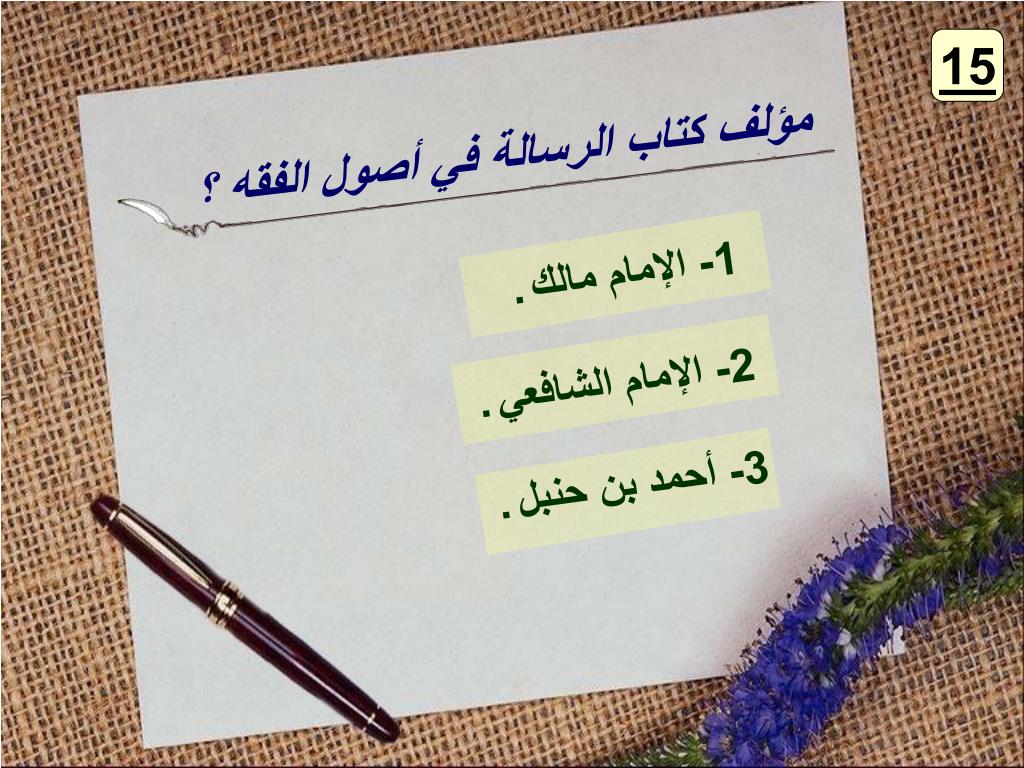 15
مؤلف كتاب الرسالة في أصول الفقه ؟
1- الإمام مالك .
2- الإمام الشافعي .
3- أحمد بن حنبل .